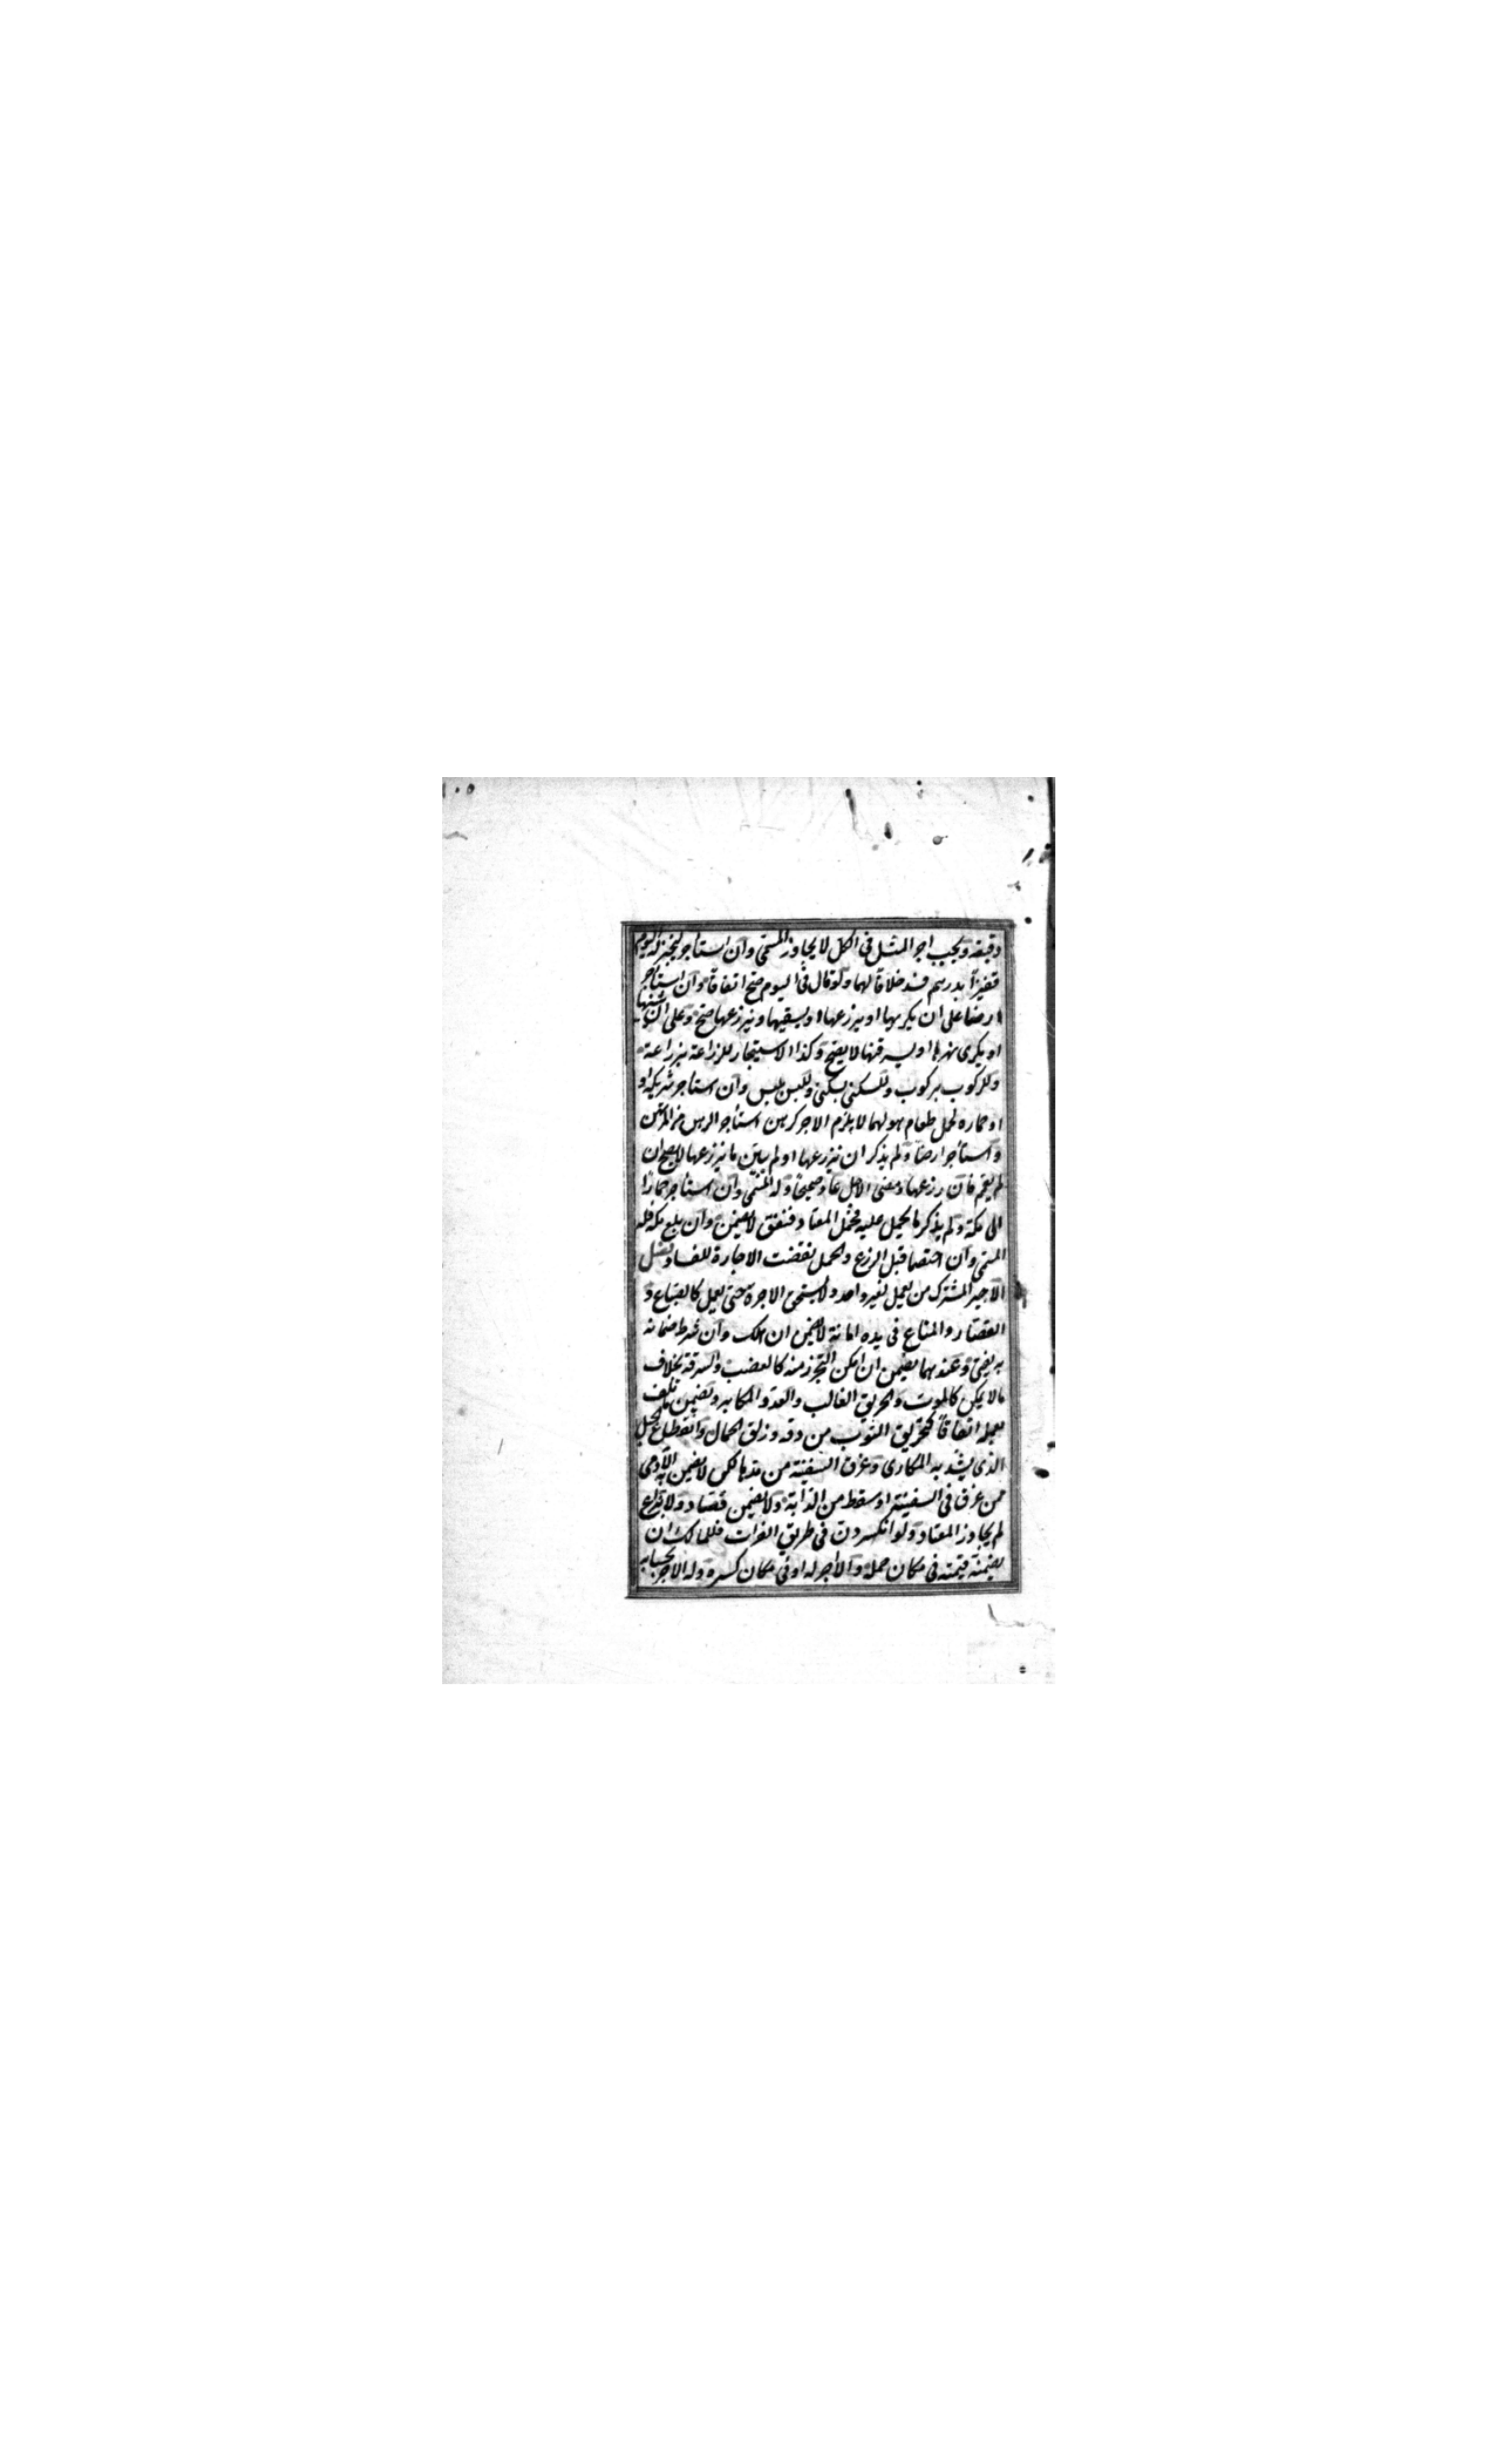 دقيقه ويجب اجر المثل فى الكل لا يجاوز المسمى وان استأجره ليخبز له اليوم
قفيزا بدرهم فسد خلافا لهما ولو قال فى اليوم صح اتفاقا وان استأجر
ارضا على ان يكربها او يزرعها او يسقيها ويزرعها صح وعلى ان يثنيها
او يكرى نهرها او يسرقنها لا يصح وكذا الاستيجار للزراعة بزراعة
وللركوب بركوب وللسكنى بسكنى وللبس بلبس وان استأجر شريكه او
او حماره لحمل طعام هو لهما لا يلزم الاجر كرهن استأجر الرهن من المرتهن
وان استأجر ارضا ولم يذكر ان يزرعها او لم يبين ما يزرعها لا يصح ان
لم يعمم فان زرعها ومضى الاجل عاد صحيحا وله المسمى وان استأجر حمارا
الى مكة ولم يذكر ما يحمل عليه فحمل المعتاد فنفق لا يضمن وان بلغ مكة فله
المسمى وان اختصما قبل الزرع والحمل نقضت الاجارة للفساد فصل
الاجير المشترك من يعمل لغير واحد ولا يستحق الاجرة حتى يعمل كالصباغ و
القصار والمتاع فى يده امانة لا يضمن ان هلك وان شرط ضمانه
به يفتى وعندهما يضمن ان امكن التحرز منه كالغصب والسرقة بخلاف
ما لا يمكن كالموت والحريق الغالب والعدو المكابر ويضمن ما تلف
بعمله اتفاقا كتخريق الثوب من دقه وزلق الحمال وانقطاع الحبل
الذى يشد به المكارى وغرق السفينة من مدها لكن لا يضمن به الآدمى
ممن غرق فى السفينة او سقط من الدابة ولا يضمن فصاد ولا بزاغ
لم يجاوز المعتاد ولو انكسر دن فى طريق الفرات فللمالك ان
يضمنه قيمته فى مكان حمله ولا اجر له او فى مكان كسره وله الاجر بحسابه